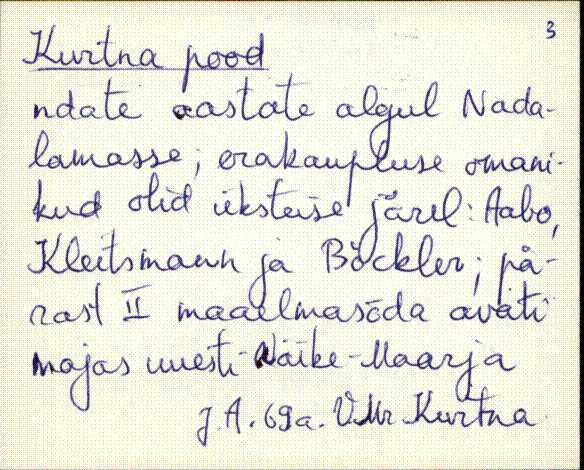 3
Kurtna pood
ndate aastate algul Nada-
lamasse; erakaupluse omani-
kud olid üksteise järel: Aabo,
Kleitsmann ja Böckler; pä-
rast II maailmasõda avati
majas uuesti Väike-Maarja
J. A. 69a. VMr Kurtna.